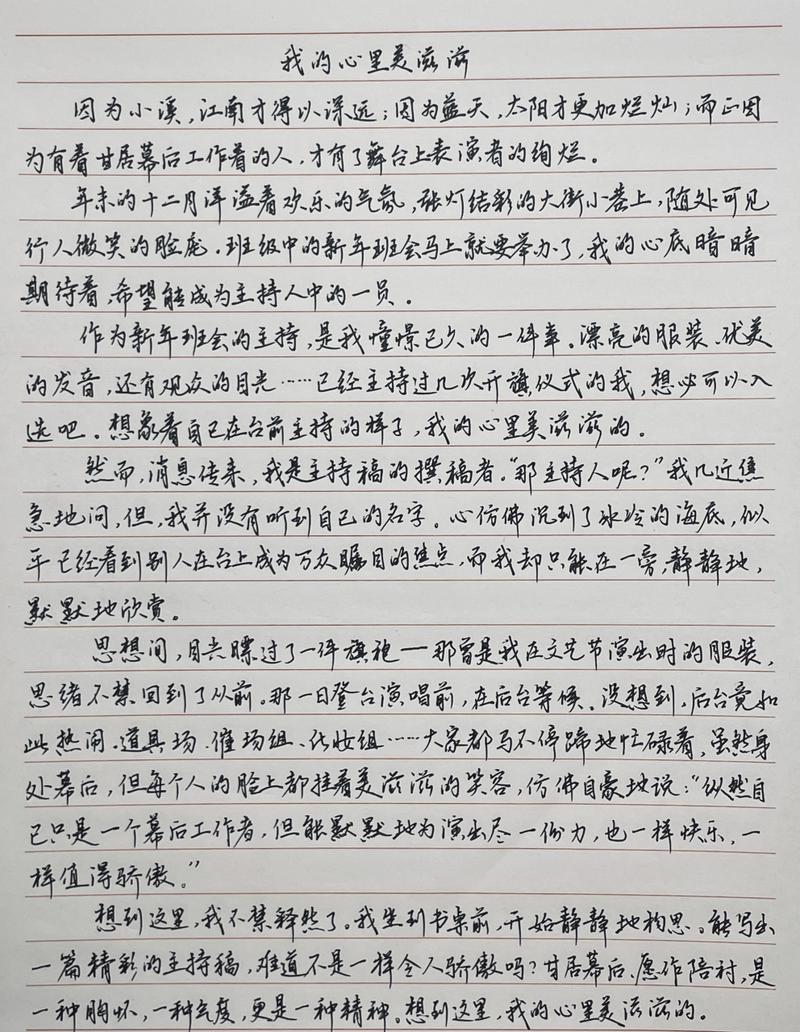 我的心里美滋滋
因为小溪，江南才得以深远；因为蓝天，太阳才更加烂灿；而正因
为有着甘居幕后工作着的人，才有了舞台上表演者的绚烂。
年末的十二月洋溢着欢乐的气氛，张灯结彩的大街小巷上，随处可见
行人微笑的脸庞。班级中的新年班会马上就要举办了，我的心底暗暗
期待着，希望能成为主持人中的一员。
作为新年班会的主持，是我憧憬已久的一件事。漂亮的服装、优美
的发音，还有观众的目光……已经主持过几次开旗仪式的我，想必可以入
选吧。想象着自己在台前主持的样子，我的心里美滋滋的。
然而，消息传来，我是主持稿的撰稿者。“那主持人呢？”我几近焦
急地问，但，我并没有听到自己的名字。心仿佛沉到了冰冷的海底，似
乎已经看到别人在台上成为万众瞩目的焦点，而我却只能在一旁，静静地，
默默地欣赏。
思想间，目光瞟过了一件旗袍——那曾是我在文艺节演出时的服装，
思绪不禁回到了从前。那一日登台演唱前，在后台等候。没想到，后台竟如
此热闹。道具场、催场组、化妆组……大家都马不停蹄地忙碌着，虽然身
处幕后，但每个人的脸上都挂着美滋滋的笑容，仿佛自豪地说：“纵然自
己只是一个幕后工作者，但能默默地为演出尽一份力，也一样快乐，一
样值得骄傲。”
想到这里，我不禁释然了。我坐到书桌前，开始静静地构思。能写出
一篇精彩的主持稿，难道不是一样令人骄傲吗？甘居幕后、愿作陪衬，是
一种胸怀，一种气度，更是一种精神。想到这里，我的心里美滋滋的。